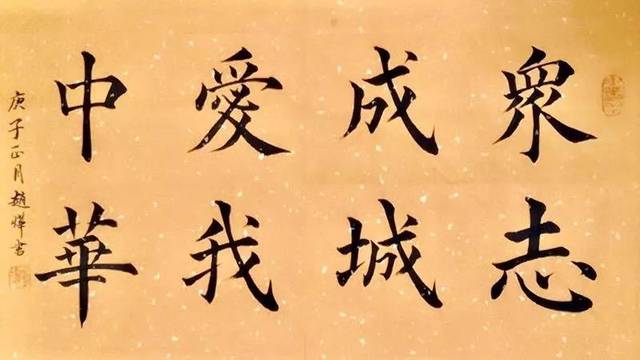 衆志
成城
愛我
中華
庚子正月趙燁書